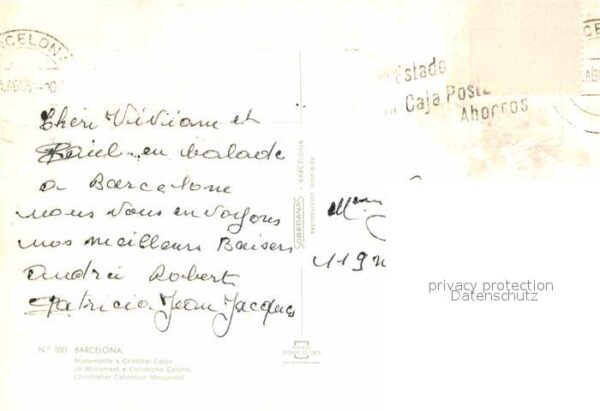 BARCELONA
Estado
Caja Posta
Ahorros
Cheri Vivian et
en balade
a Barcelone
nous vous envoyons
nos meilleurs Baisers
André Robert
Patricia Jean Jacques
SOBERANAS - BARCELONA
reproducción prohibida
privacy protection
Datenschutz
N.° 100 BARCELONA
Monumento a Cristóbal Colón.
Le Monument a Christophe Colomb.
Christopher Columbus Monument.